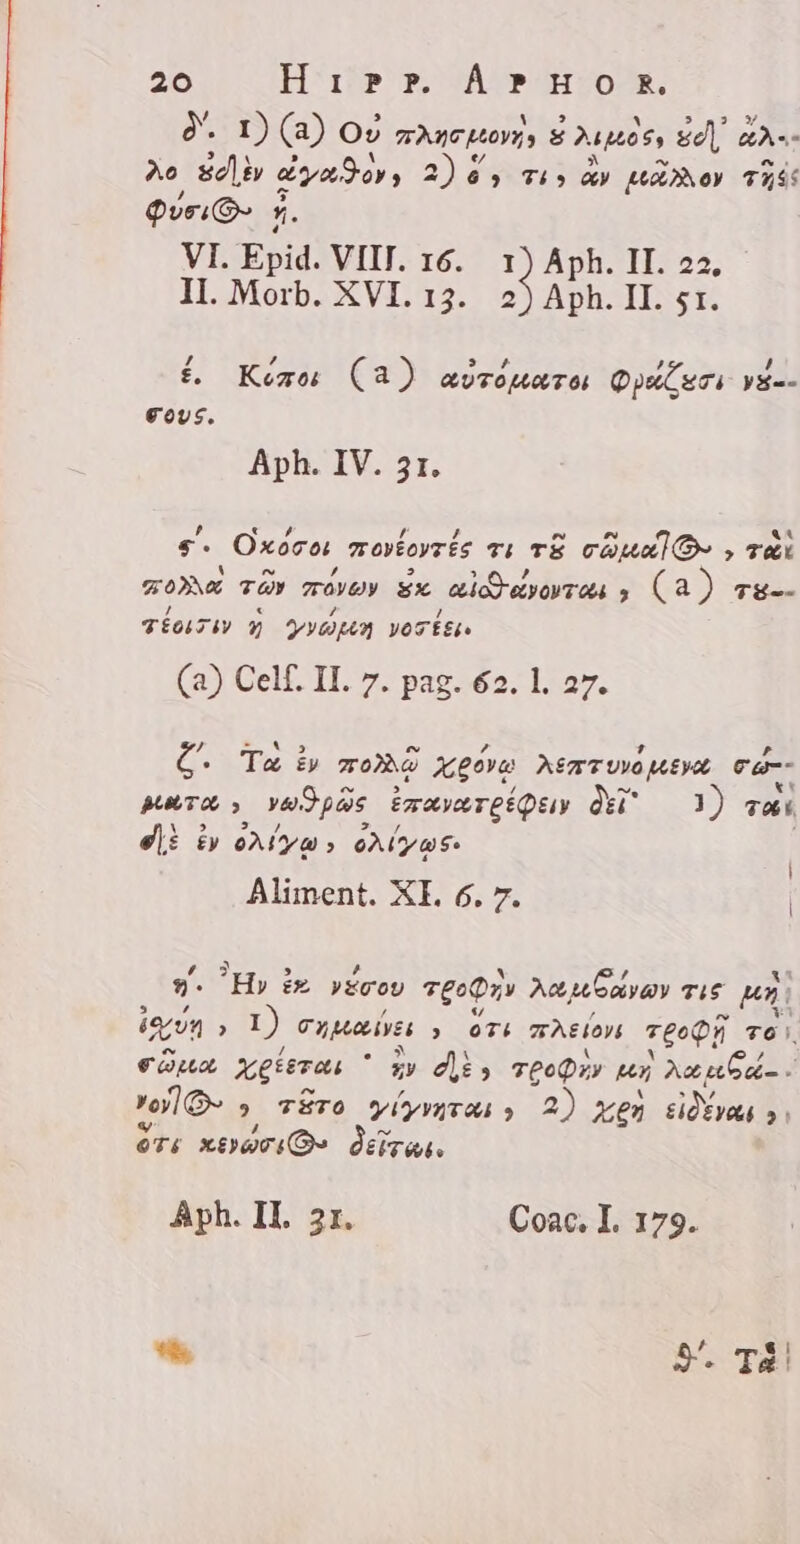 20 HIPP. APHOR.
δ'. 1) (a) Οὐ πλησμονὴ, ȣ̓ λιμὸς, ȣ̓δ' ἄλ-
λο ȣ̓δὲν ἀγαθὸν, 2) ὅ, τι, ἂν μᾶλλον τῆς
φύσιος ᾖ.
VI. Epid. VIII. 16. 1) Aph. II. 22,
II. Morb. XVI. 13. 2) Aph. II. 51.
έ. Κόποι (a) αὐτόματοι φράζȣσι νȣ́-
σους.
Aph. IV. 31.
ϛ'. Ὁκόσοι πονέοντές τι τȣ͂ σώματος, τὰ
πολλὰ τῶν πόνων ȣ̓κ αἰσθάνονται, (a) τȣ-
τέοισιν ἡ γνώμη νοσέει.
(a) Celf. II. 7. pag. 62. l. 27.
ζ'. Τὰ ἐν πολλῷ χρόνῳ λεπτυνόμενα σώ-
ματα, νωθρῶς ἐπανατρέφειν δεῖ· 1) τὰ
δὲ ἐν ὀλίγῳ, ὀλίγως.
Aliment. XI. 6. 7.
ή. Ἢν ἐκ νȣ́σου τροφὴν λαμβάνων τις μὴ
ἰσχύῃ, 1) σημαίνει, ὅτι πλείονι τροφῇ τὸ
σῶμα χρέεται· ἢν δὲ, τροφὴν μὴ λαμβά-
νοντος, τȣ͂το γίγνηται, 2) χρὴ εἰδέναι,
ὅτι κενώσιος δεῖται.
Aph. II. 31. Coac. I. 179.
θ'. Τὰ